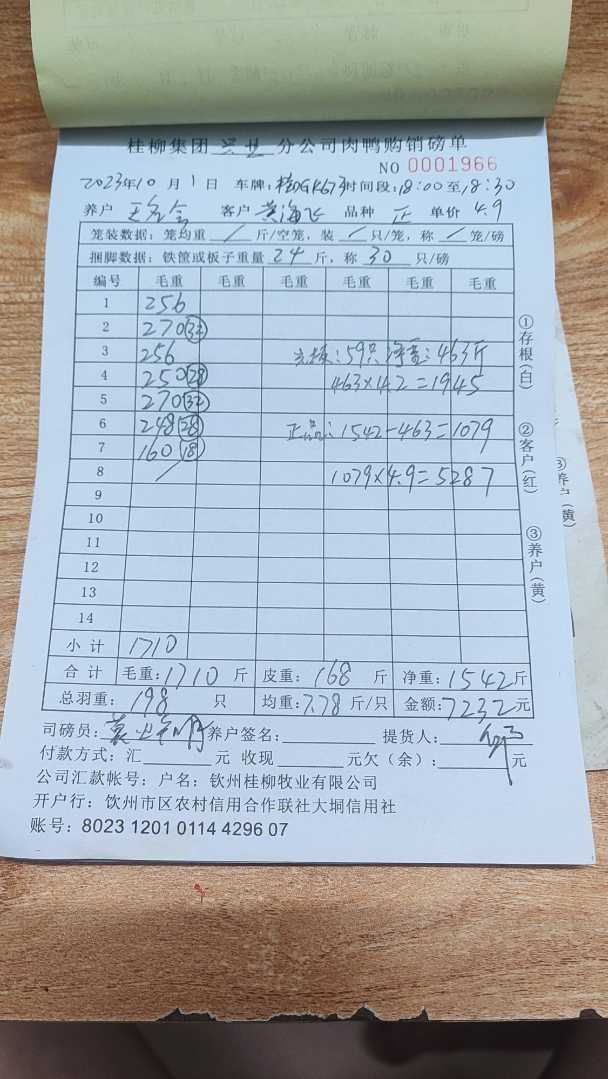 桂柳集团 兴业 分公司肉鸭购销磅单
NO 0001966
2023年10月1日 车牌: 桂DGK673 时间段: 18:00至18:30
养户 客户 黄海飞 品种 正 单价 4.9
笼装数据: 笼均重 / 斤/空笼, 装 / 只/笼, 称 / 笼/磅
捆脚数据: 铁筐或板子重量 24 斤, 称 30 只/磅
编号 毛重 毛重 毛重 毛重 毛重 毛重
1 256
2 270 (32)
3 256 毛板: 59只 净重: 463斤
4 250 (28) 463×4.2=1945
5 270 (32)
6 248 (28) 正品: 1542-463=1079
7 160 (18)
8 / 1079×4.9=5287
9
10
11
12
13
14
小计 1710
合计 毛重: 1710 斤 皮重: 168 斤 净重: 1542斤
总羽重: 198 只 均重: 7.78 斤/只 金额: 7232元
司磅员: 养户签名: 提货人:
付款方式: 汇 元 收现 元欠(余): 元
公司汇款帐号: 户名: 钦州桂柳牧业有限公司
开户行: 饮州市区农村信用合作联社大垌信用社
账号: 8023 1201 0114 4296 07
①存根(白)
②客户(红)
③养户(黄)
③养户(黄)